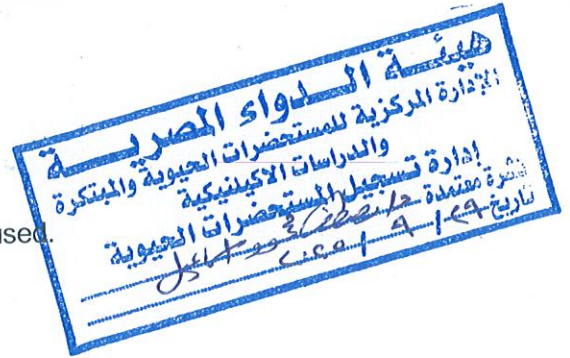 هيئة الدواء المصرية
الإدارة المركزية للمستحضرات الحيوية والمبتكرة
والدراسات الاكلينيكية
إدارة تسجيل المستحضرات الحيوية
نشرة معتمدة
تاريخ ٢٩ / ٩ /
used.